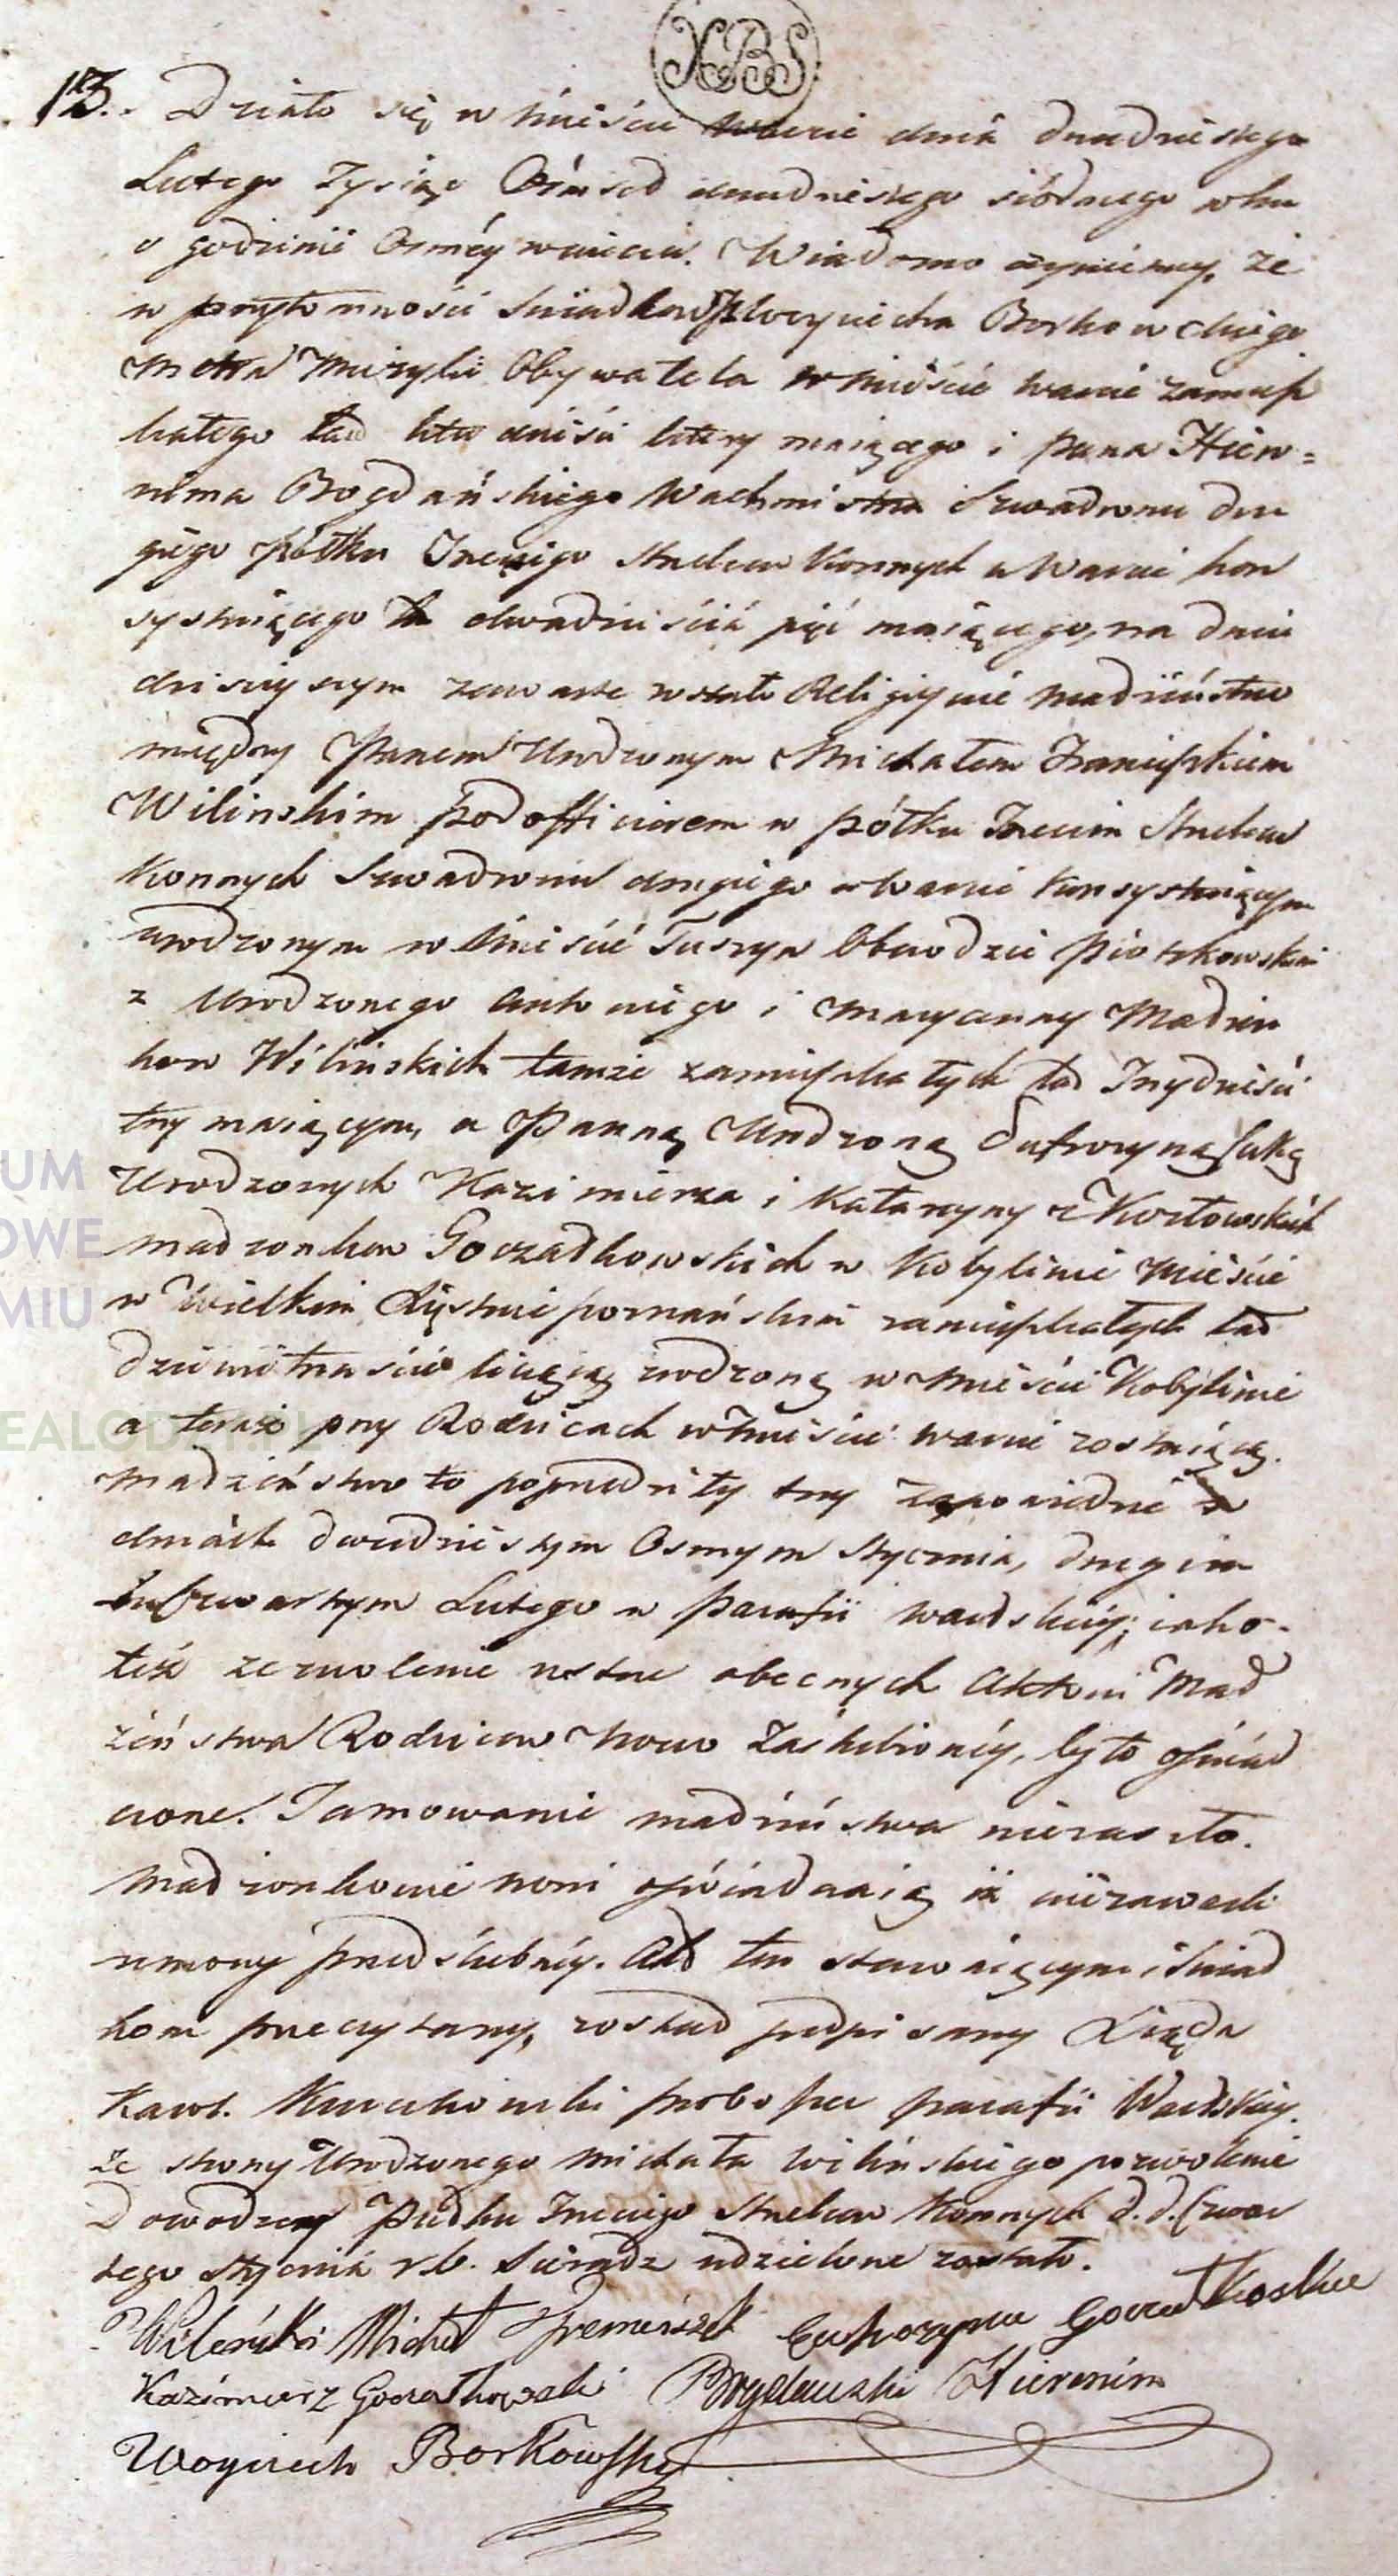 XBS
13. Działo się w Mieście Warcie dnia dwudziestego
Lutego Tysiąc Ośmset dwudziestego siódmego roku
o godzinie Osméy wieczor. Wiadomo czyniemy, że
w przytomności Świadków Woyciecha Borkowskiego
Metra Muzyki Obywatela w Mieście Warcie zamiesz
kałego lat czterdzieści cztery maiącego i Pana Hiero=
nima Bogdańskiego Wachmistra Szwadronu dru
giego Półku Trzeciego Strzelców Konnych w Warcie kon
systuiącego lat dwadzieścia pięć maiącego, na dniu
dzisieyszym zawarte zostało Religiyné Małżeństwo
między Panem Urodzonym Michałem Franciszkiem
Wilinskim Podofficierem w Półku Trzecim Strzelców
Konnych Szwadronu drugiego w Warcie Konsystuiącym
urodzonym w Mieście Tuszyn Obwodzie Piotrkowskim
z Urodzonego Antoniego i Maryanny Małżon
ków Wilińskich tamże zamieszkałych lat Trzydzieści
trzy maiącym, a Panną Urodzoną Eufrozyną Curką
Urodzonych Kazimierza i Katarzyny z Kozłowskich
małżonków Goczałkowskich w Kobylinie Mieście
w Wielkim Xięstwie poznańskim zamieszkałych lat
dziewiętnaście liczącą urodzoną w Mieście Kobylinie
a teraz przy Rodzicach w Mieście Warcie zostaiącą.
Małżeństwo to poprzedziły trzy zapowiedzie w
dniach dwudziestym Osmym Stycznia, drugim
Czwartym Lutego w Parafii Wartskiéy; iako-
téż zezwolenie ustne obecnych Aktowi Mał
żeństwa Rodziców Nowo Zaślubionéy, było oświad
czone. Tamowanie małżeństwa niezaszło.
Małżonkowie nowi oświadczaią iż niezawarli
umowy przedślubnéy. Akt ten stawaiącym i Świad
kom przeczytany, został podpisany Xiądz
Karol. proboszcz parafii Wartskiéy.
ze strony Urodzonego Michała Wilińskiego pozwolenie
Dowodzcy Pułku Trzeciego Strzelców Konnych d. d. Czwar
tego Stycznia r. b. Sieradz udzielone zostało.
Wileński Michał Franciszek Eufrozyna Goczałkoska
Kazimierz Goczałkowski Bogdanski Hieronim
Woyciech Borkowski